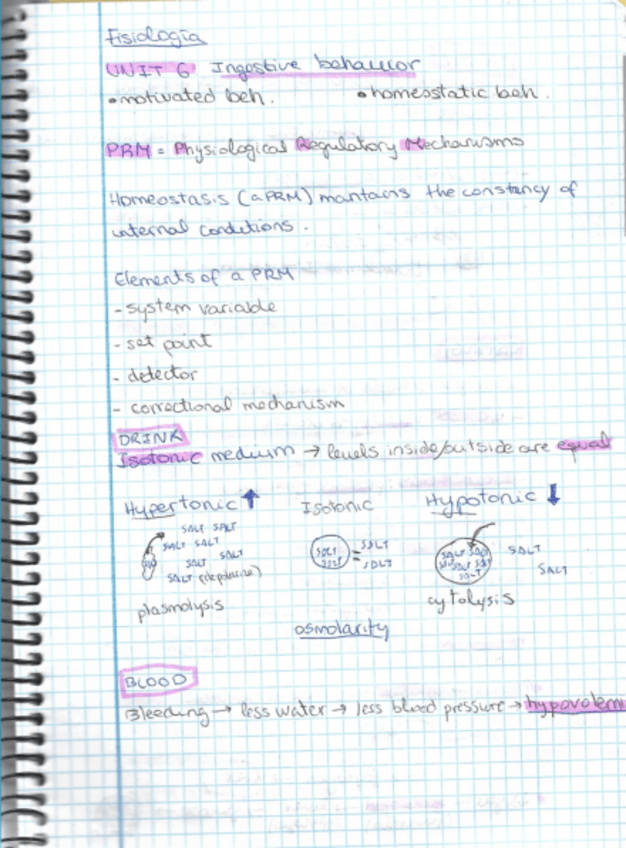 Fisiologia
UNIT 6 Ingestive behaviour
• motivated beh. • homeostatic beh.
PRM = Physiological Regulatory Mechanisms
Homeostasis (a PRM) mantains the constancy of
internal conditions.
Elements of a PRM
- system variable
- set point
- detector
- correctional mechanism
DRINK
Isotonic medium → levels inside/outside are equal
Hypertonic ↑ Isotonic Hypotonic ↓
SALT SALT
SALT SALT
SALT SALT
SALT
SALT SALT = SALT SALT
SALT SALT SALT SALT SALT
SALT
SALT
plasmolysis cytolysis
osmolarity
BLOOD
Bleeding → less water → less blood pressure → hypovolem